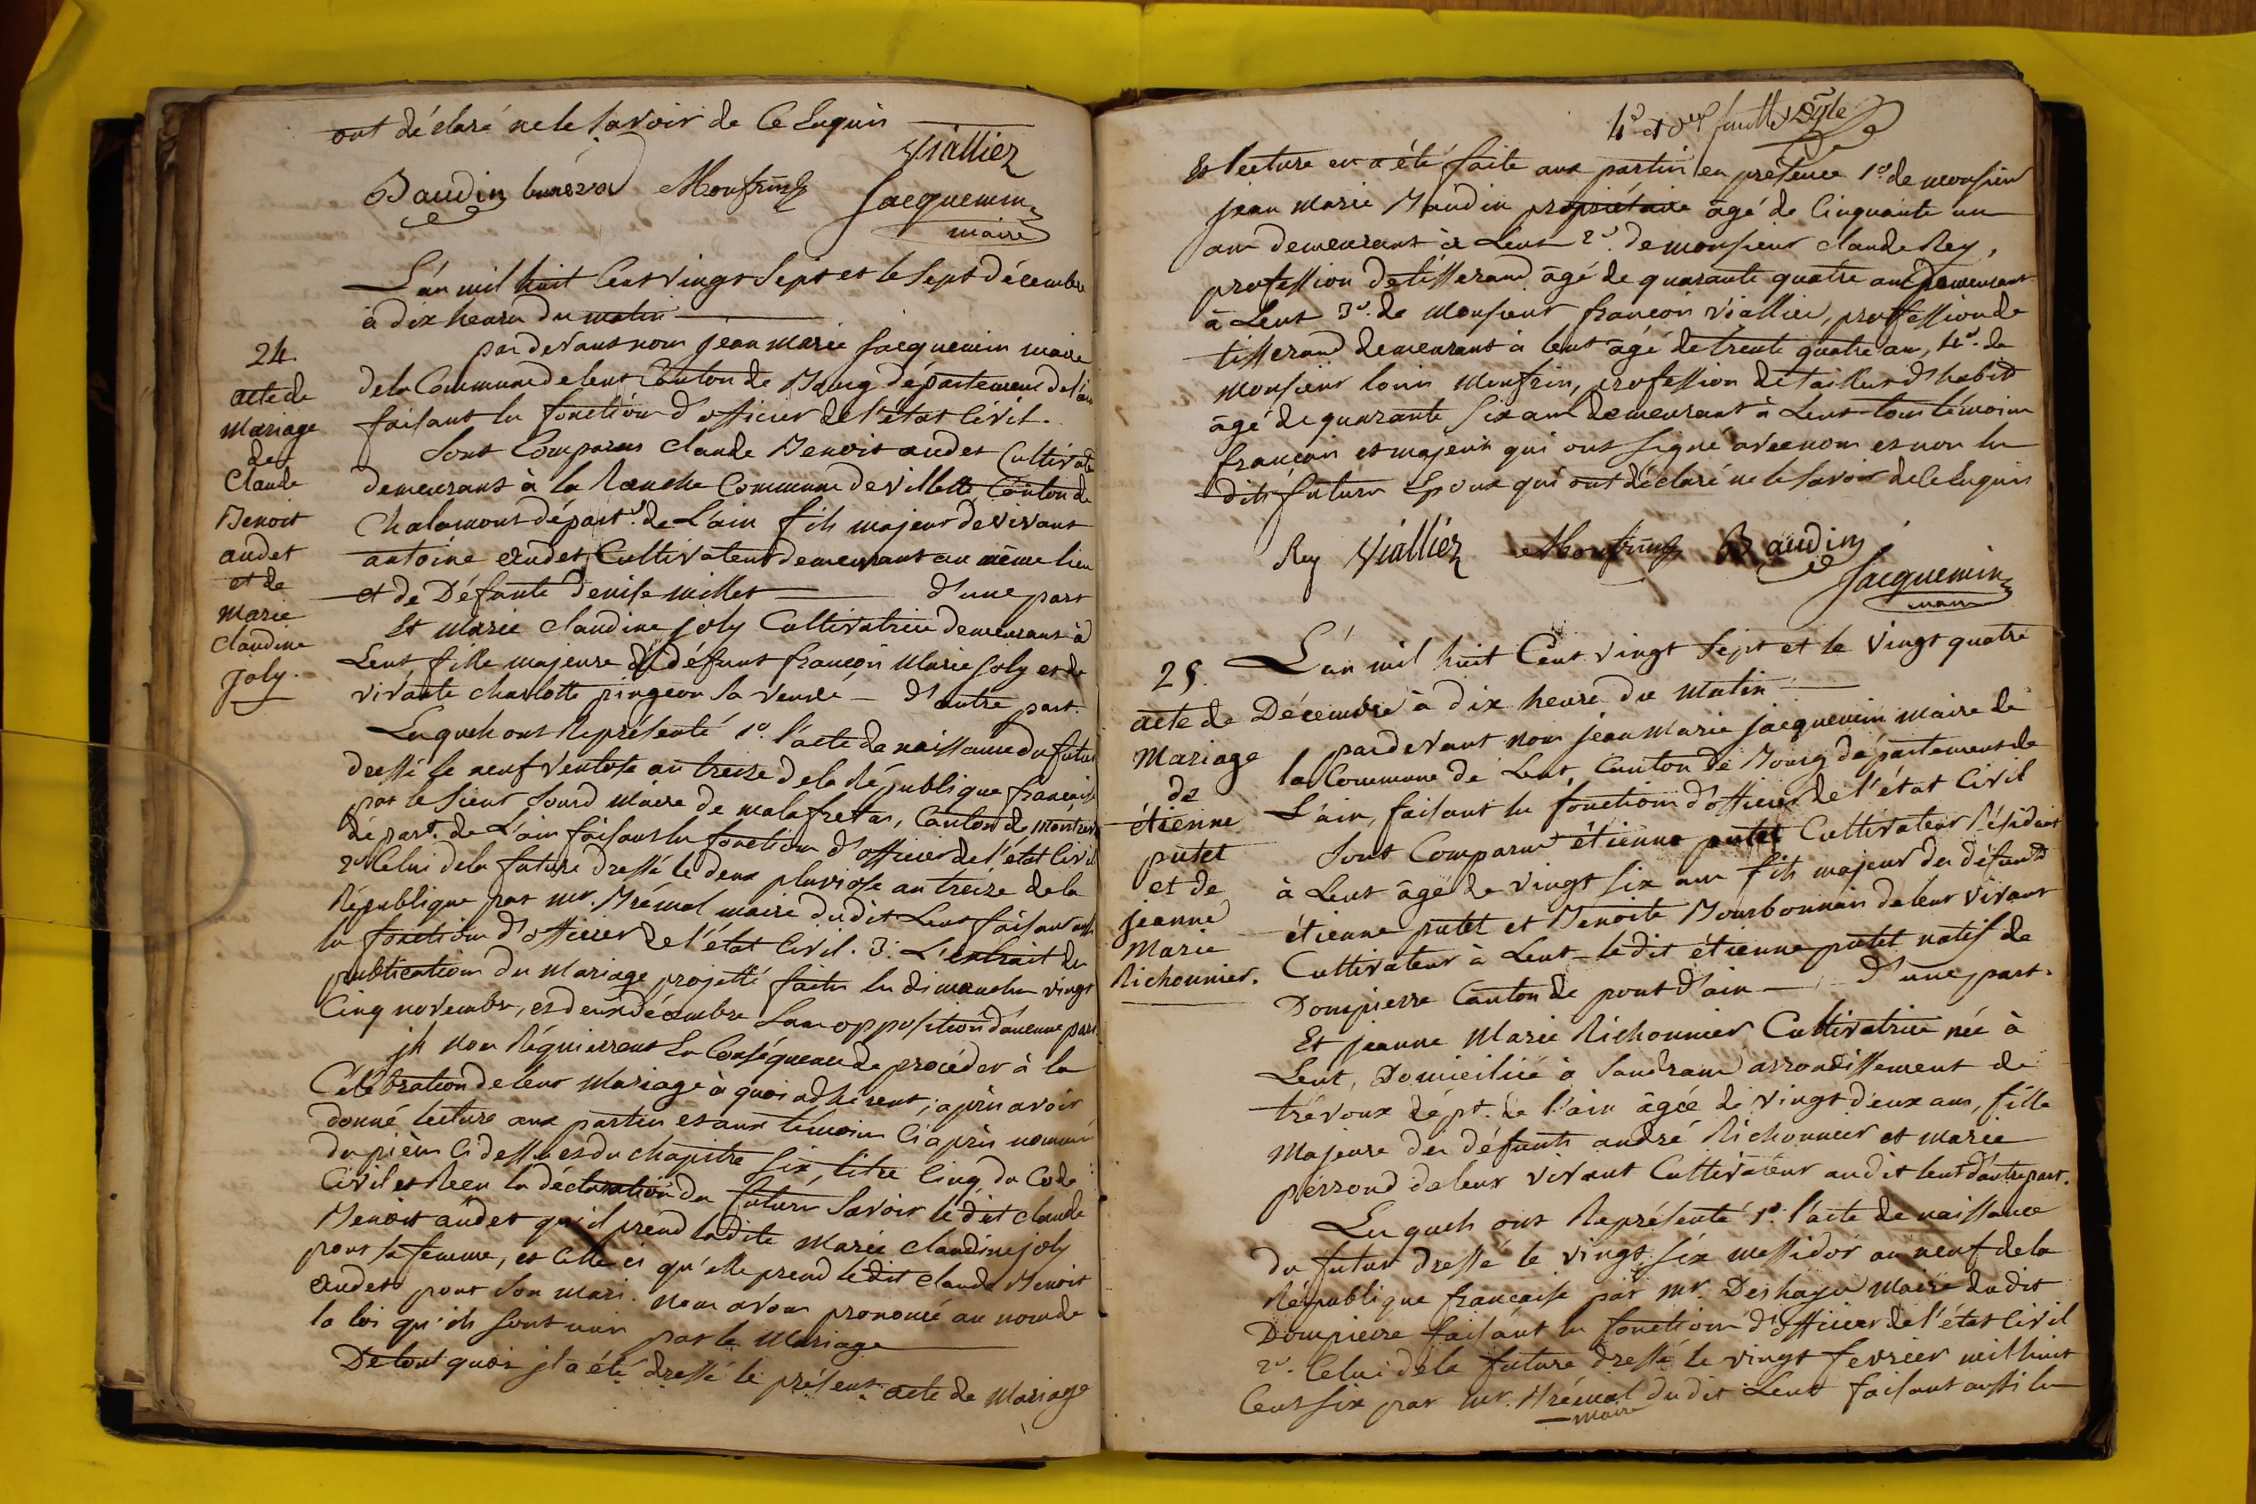 ont déclaré ne le savoir de ce Enquis
Viallier
Baudin Monfrin Jacquemin
maire
L'an mil huit Cent vingt Sept et le Sept décembre
à dix heures du matin
24.
acte de
Mariage
de
Claude
Benoit
audet
et de
Marie
Claudine
Joly.
par devant nous jean marie jacquemin maire
de la Commune de lent Canton de Bourg département de l'ain
faisant les fonctions d'officier de l'état Civil.
Sont Comparus Claude Benoit audet Cultivateur
demeurant à la Ranche Commune de villette, Canton de
Chalamont départ.t de L'ain fils majeur de vivant
antoine audet, Cultivateur demeurant au même lieu
et de Défunte denise millet d'une part
Et marie claudine joly Cultivatrice demeurant à
Lent fille majeure de défunt françois Marie joly et de
vivante charlotte pingeon sa veuve – d'autre part.
Lesquels ont Représenté 1.o l'acte de naissance du futur
dressé le neuf ventose an treize de la République française
par le sieur Sourd Maire de malafretas, Canton de Montrevel
départ.t de L'ain faisant les fonctions d'officier de l'état Civil
2.o Celui de la future dressé le deux pluviose an treize de la
République par mr. Brémal maire du dit Lent faisant aussi
les fonctions d'officier de l'état Civil. 3.o L'extrait des
publications du Mariage projetté faites les dimanches vingt
Cinq novembre, et deux décembre Sans opposition d'aucune part
ils nous Réquierrent En Conséquence de procéder à la
Célébration de leur Mariage à quoi adhérent; après avoir
donné lecture aux parties et aux témoins Ci après nommés
des pièces Ci dessus et du chapitre Six, titre Cinq du Code
Civil et Reçu la déclaration des futurs Savoir le dit claude
Benoit audet qu'il prend ladite Marie Claudine joly
pour sa femme, et Celle ci qu'elle prend le dit claude Benoit
audet pour Son mari. nous avons prononcé au nom de
la loi qu'ils sont unis par le Mariage
De tout quoi jl a été dressé le présent acte de Mariage
4.e et feuille
Et lecture en a été faite aux parties en présence 1.o de monsieur
jean marie Baudin propriétaire âgé de Cinquante un
ans demeurant à Lent 2.o de monsieur claude Rey,
profession de tisserand âgé de quarante quatre ans demeurant
à Lent 3.o de Monsieur françois viallier, proffession de
tisserand demeurant à lent âgé de trente quatre ans, 4.o de
Monsieur louis Monfrin, profession de tailleur d'habits
âgé de quarante Six ans demeurant à Lent tous témoins
français et majeurs qui ont Signé avec nous et non les
dits futurs Epoux qui ont déclaré ne le Savoir de ce Enquis
Rey Viallier Monfrin Baudin
Jacquemin
maire
25.
acte de
Mariage
de
étienne
putet
et de
jeanne
Marie
Richonnier.
L'an mil huit Cent vingt Sept et le vingt quatre
Décembre à dix heures du Matin
par devant nous jean Marie jacquemin maire de
la Commune de Lent, Canton de Bourg département de
L'ain, faisant les fonctions d'officier de l'état Civil
Sont Comparus étienne putet Cultivateur Résidant
à Lent âgé de vingt six ans fils majeur des défunts
étienne putet et Benoite Bourbonnais de leur vivant
Cultivateurs à Lent – le dit étienne putet natif de
Dompierre Canton de pont d'ain – d'une part.
Et jeanne Marie Richonnier Cultivatrice née à
Lent, Domiciliée à Sandrans arrondissement de
trévoux dép.t de l'ain âgée de vingt deux ans, fille
Majeure des défunts andré Richonnier et marie
perroud de leur vivant Cultivateurs audit lent d'autre part.
Lesquels ont Représenté 1.o l'acte de naissance
du futur dressé le vingt six messidor an neuf de la
République francaise par mr. Deshayes Maire du dit
Dompierre faisant les fonctions d'officier de l'état Civil
2.o Celui de la future dressé le vingt fevrier mil huit
Cent six par mr. Brémal du dit Lent faisant aussi les
maire